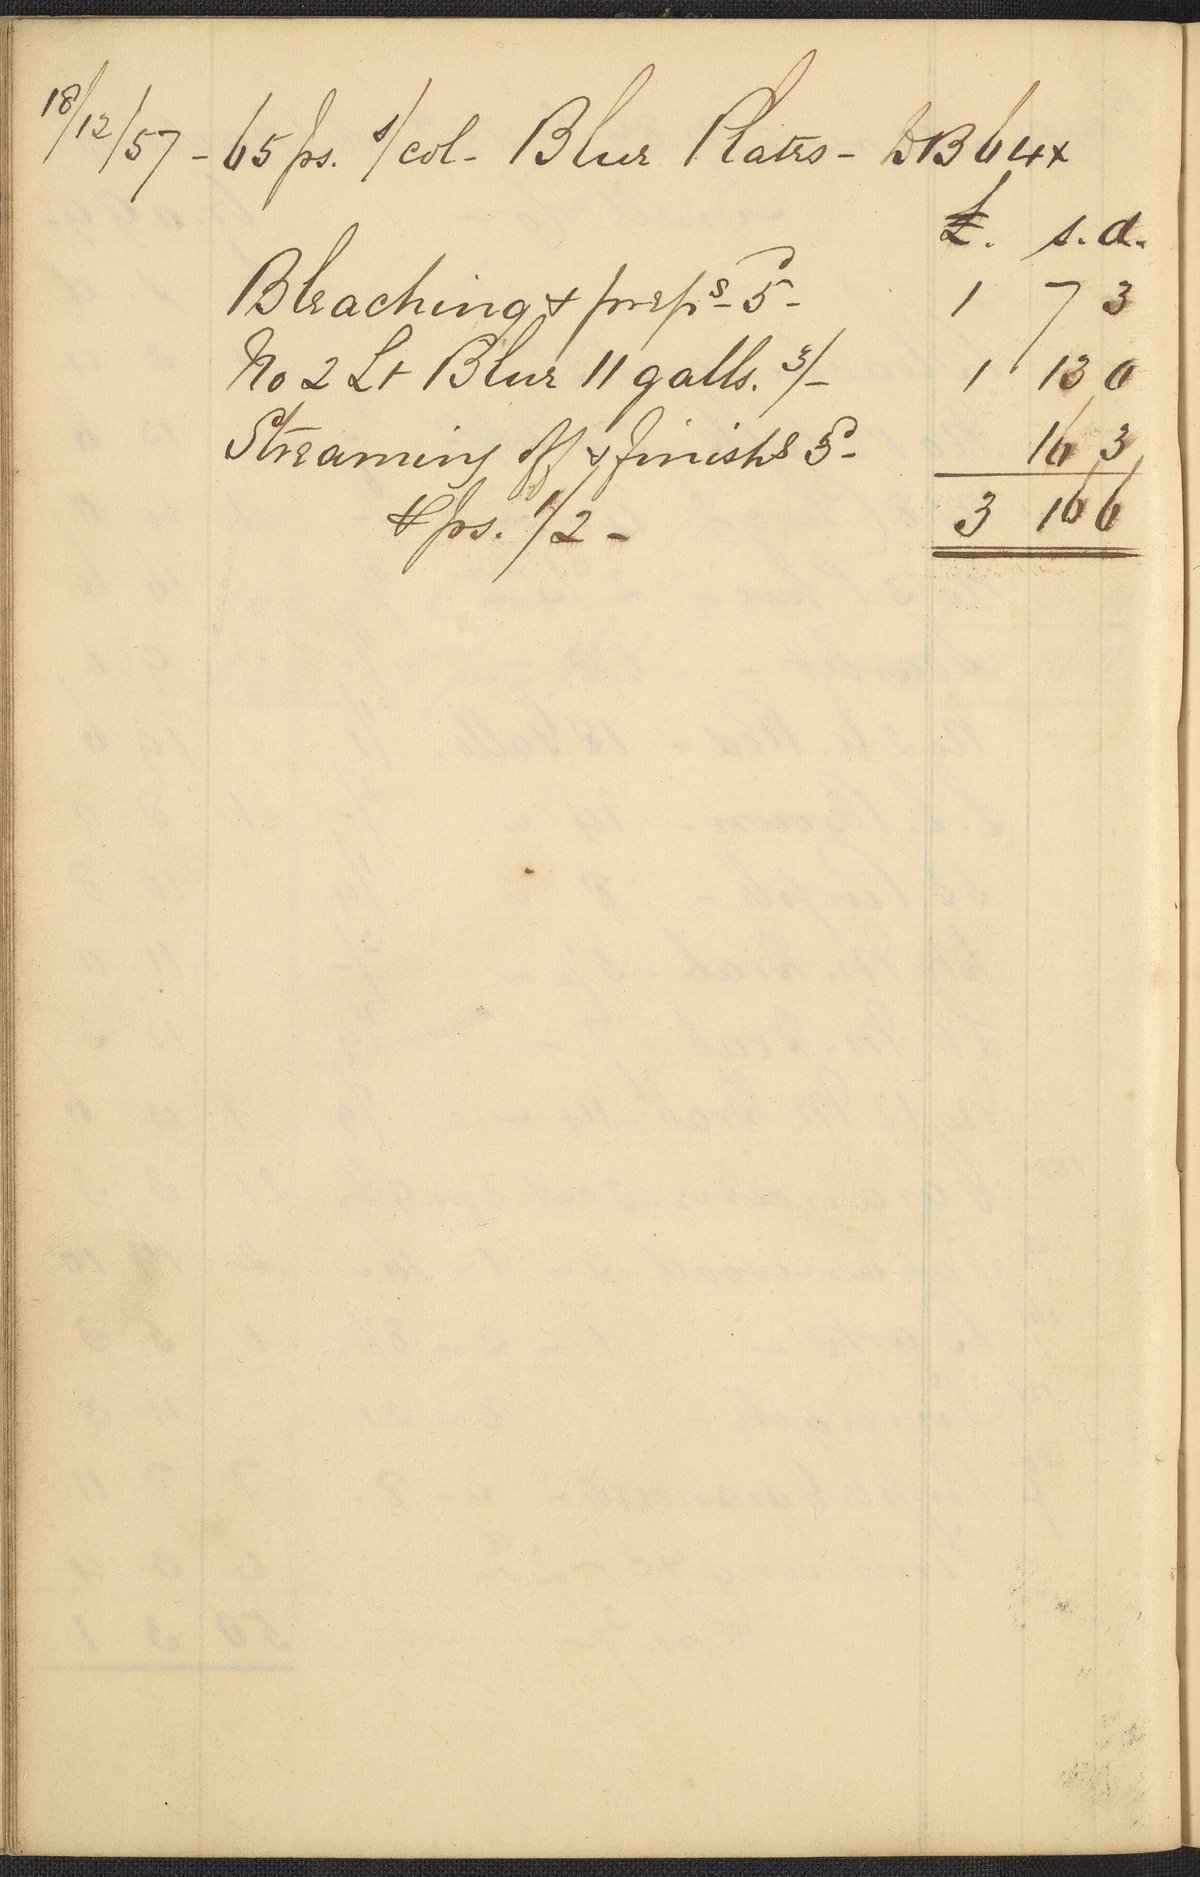 18/12/57 - 65 ps. 1/col - Blue Plates - DB 64x
£. s. d.
Bleaching & prepg 5d - 1 7 3
No 2 Lt Blue 11 galls. 3/- 1 13 0
Streaming off & finishg 3d - 16 3
& ps. 1/2 - 3 16 6